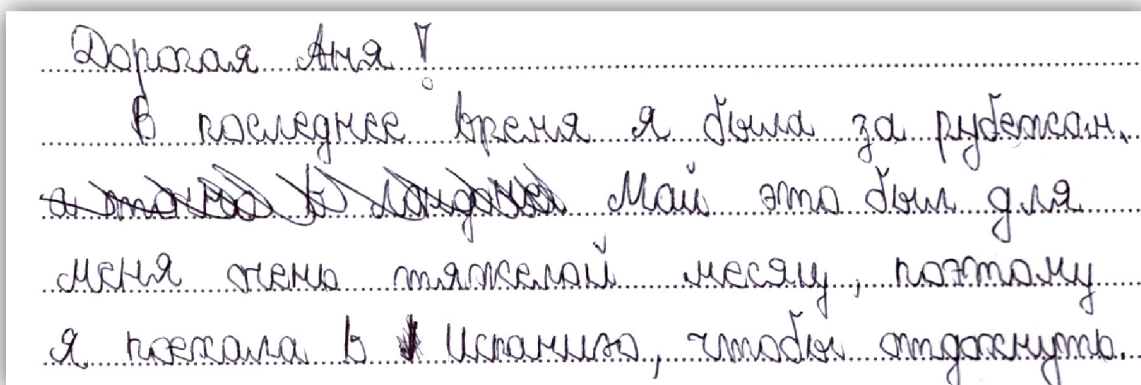 Дорогая Аня!
В последнее время я была за рубежом.
Май это был для
меня очень тяжелой месяц, поэтому
я поехала в Испанию, чтобы отдохнуть.